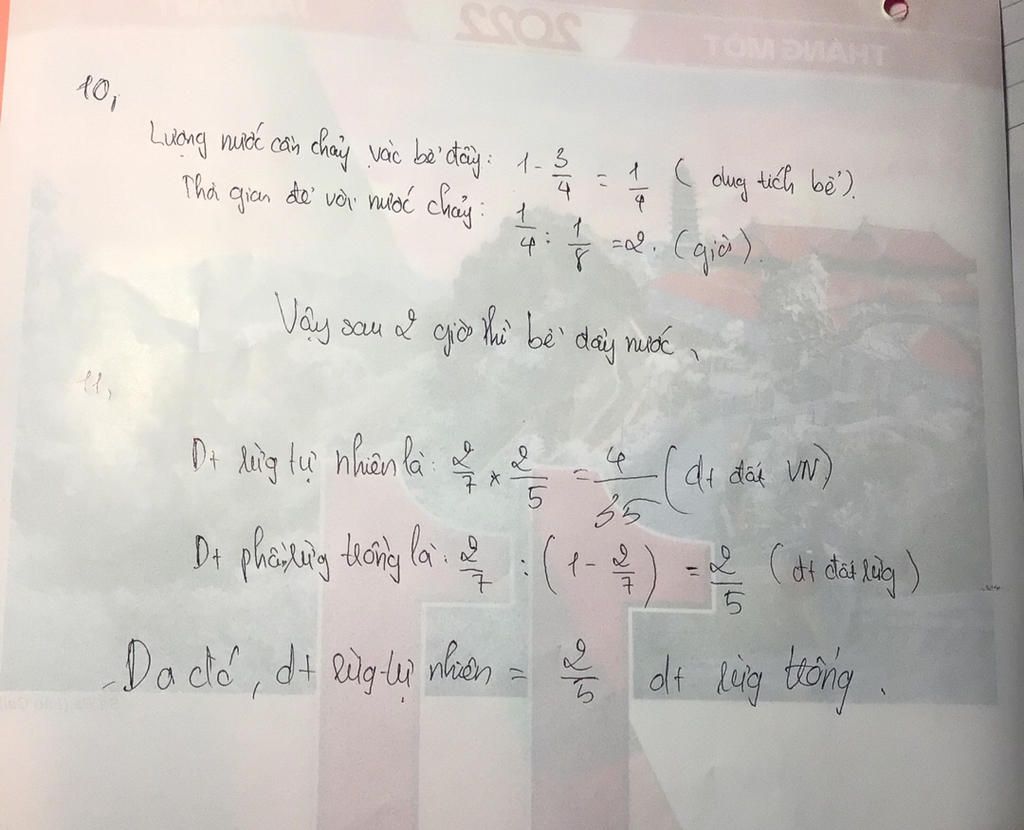 2022
THÁNG MỘT
10,
Lượng nước cần chảy vào bể đầy: 1 - 3/4 = 1/4 ( dung tích bể ).
Thời gian để vòi nước chảy: 1/4 : 1/8 = 2. (giờ).
Vậy sau 2 giờ thì bể đầy nước.
11,
Dt rừng tự nhiên là: 2/7 × 2/5 = 4/35 ( dt đất VN)
Dt phần rừng trồng là: 2/7 : (1 - 2/7) = 2/5 ( dt đất rừng )
Do đó, dt rừng tự nhiên = 2/5 dt rừng trồng.